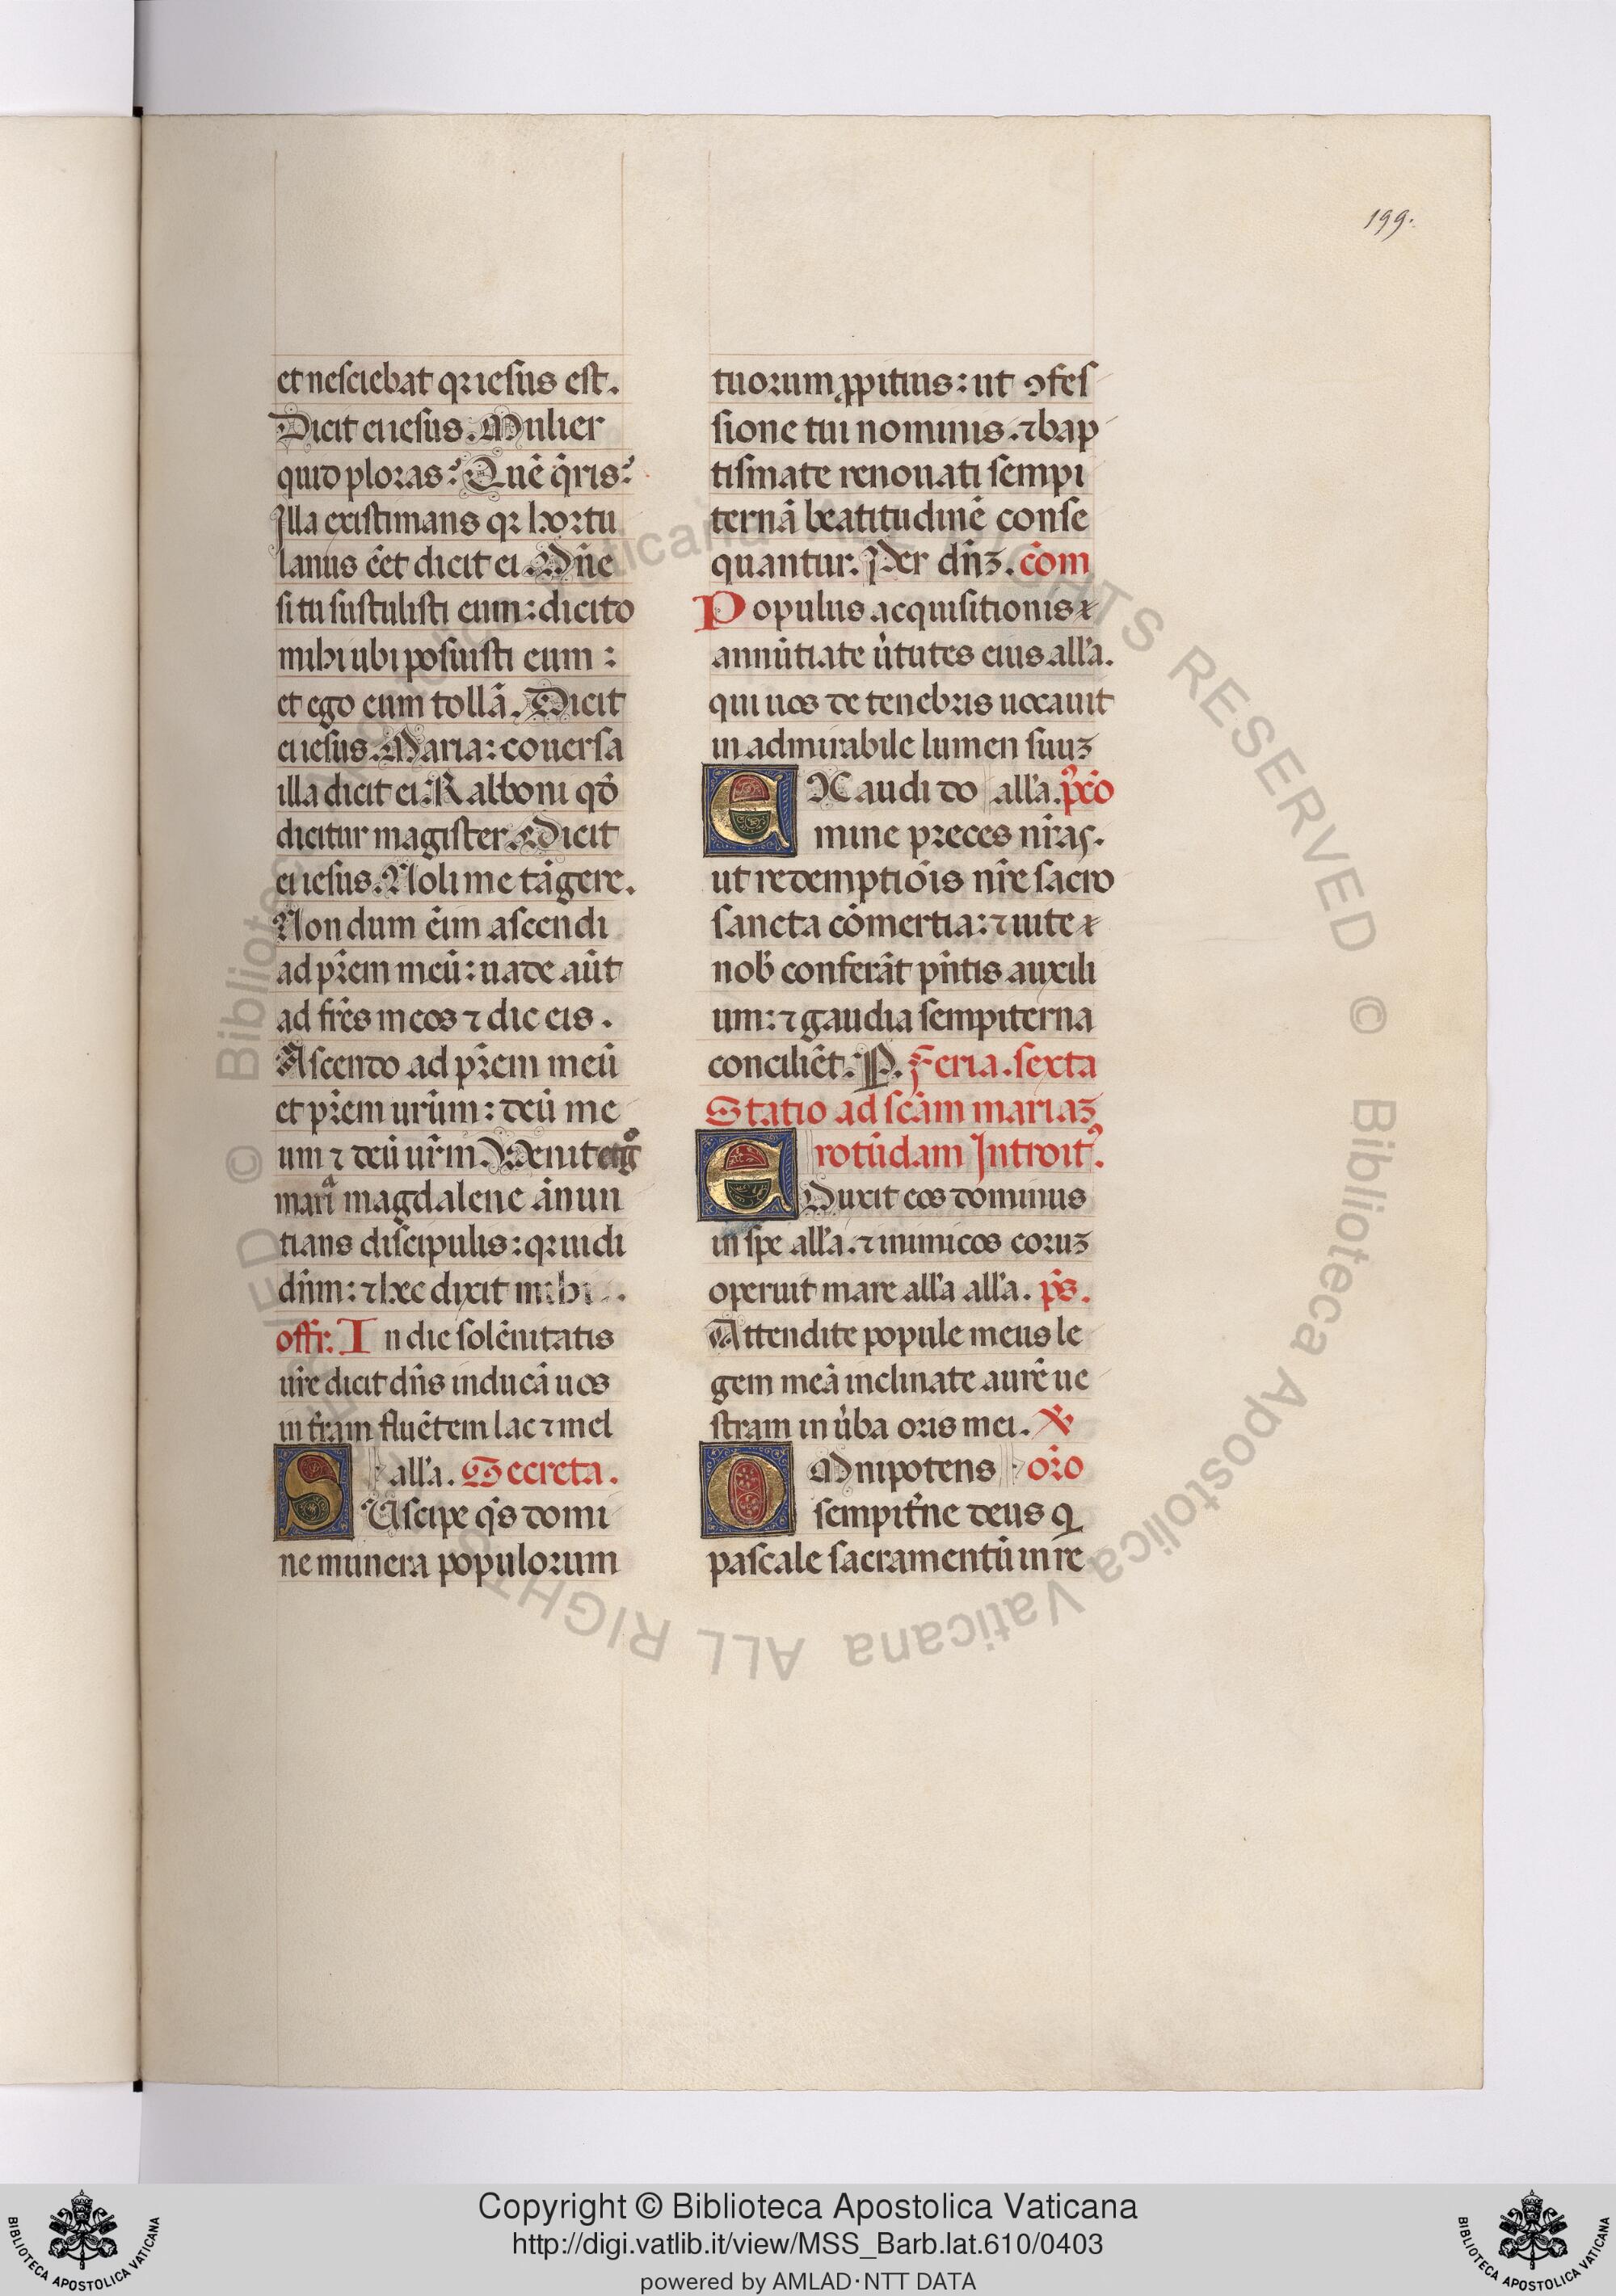 199.
et nesciebat qꝛ iesus est.
Dicit ei iesus. Mulier
quid ploras? Quē q̄ris?
Illa existimans qꝛ hortu
lanus ēēt dicit ei. Dn̄e
si tu sustulisti eum: dicito
mihi ubi posuisti eum:
et ego eum tollā. Dicit
ei iesus. Maria: cōuersa
illa dicit ei. Rabboni qd̄
dicitur magister. Dicit
ei iesus. Noli me tāgere.
Non dum ēim ascendi
ad pr̄em meū: uade aūt
ad fr̄es meos ⁊ dic eis.
Ascendo ad pr̄em meū
et pr̄em urūm: deū me
um ⁊ deū ur̄m. Uenit ergͦ
mariᵃ magdalene ānun
tians discipulis: qꝛ uidi
dn̄m: ⁊ hec dixit mihi.
offr. In die solēnitatis
ur̄e dicit dn̄s inducā uos
in tr̄am fluētem lac ⁊ mel
all'a. Secreta.
SUscipe q̄s domi
ne munera populorum
tuorum ꝓpitius: ut ꝯfes
sione tui nominis. ⁊ bap
tismate renouati sempi
ternā beatitudinē conse
quantur. Per dn̄ꝫ. cōm
Populus acquisitionis
annūtiate u̇tutes eius all'a.
qui uos de tenebris uocauit
in admirabile lumen suuꝫ
EXaudi do all'a. pꝰcō
mine preces nr̄aꝝ.
ut redemptiōis nr̄e sacro
sancta cōmertia: ⁊ uite
nob' conferāt pn̄tis auxili
um: ⁊ gaudia sempiterna
conciliēt. P. Feria. sexta
Statio ad scām mariaꝫ
rotūdam Introitꝰ.
EDuxit eos dominus
in spe all'a. ⁊ inimicos eoruꝫ
operuit mare all'a all'a. p̄s.
Attendite popule meus le
gem meā inclinate aurē ue
stram in u̇ba oris mei.
OMnipotens or̄o
sempit̄ne deus q
pascale sacramentū in re
© Biblioteca Apostolica Vaticana ALL RIGHTS RESERVED © Biblioteca Apostolica Vaticana ALL RIGHTS RESERVED
Copyright © Biblioteca Apostolica Vaticana
http://digi.vatlib.it/view/MSS_Barb.lat.610/0403
powered by AMLAD·NTT DATA
BIBLIOTECA APOSTOLICA VATICANA
BIBLIOTECA APOSTOLICA VATICANA